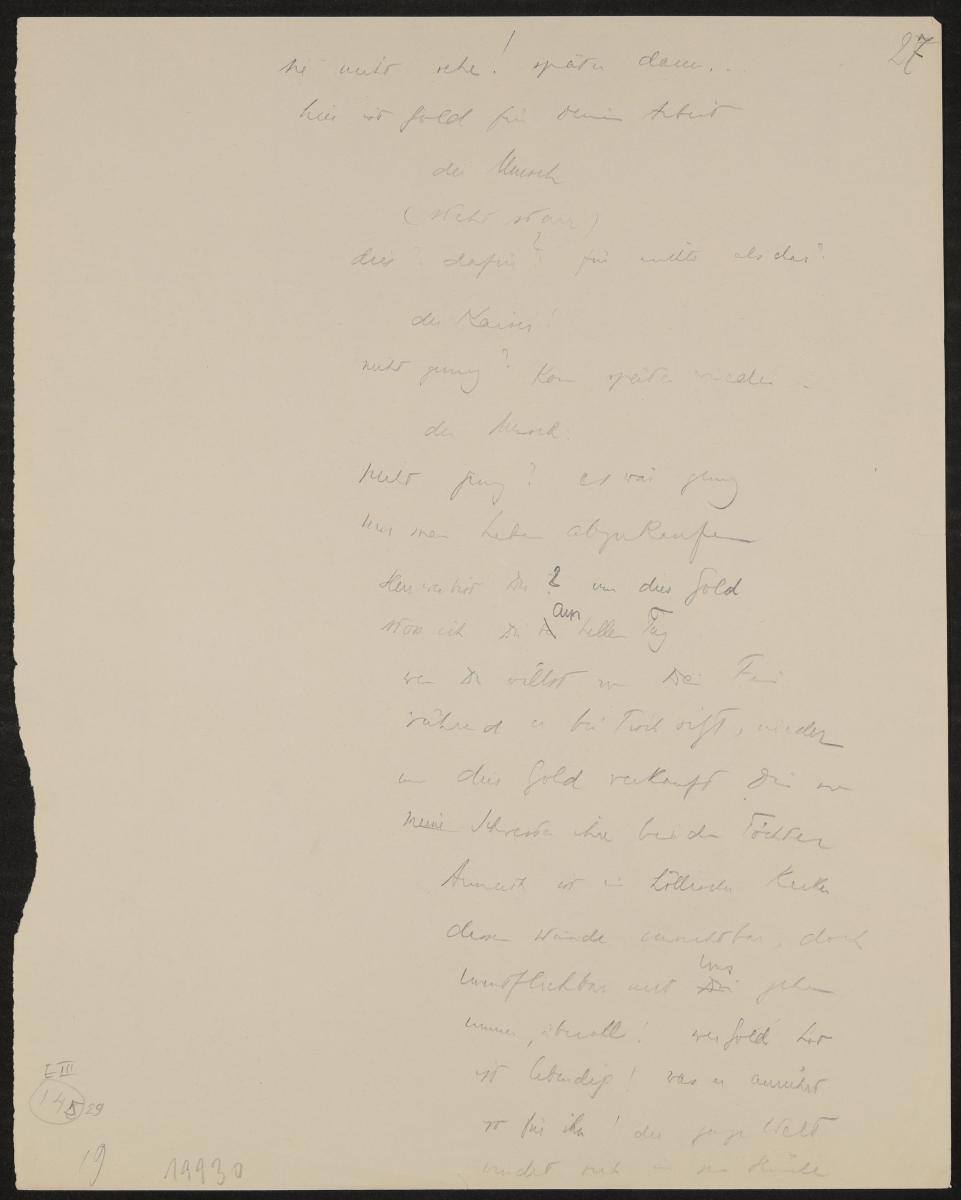 27
sie nicht sehe! später dann...
hier ist Gold für deine Arbeit
der Mensch
(steht starr)
dies? dafür? für nichts als das?
der Kaiser!
nicht genug? Kom später wieder.
der Mensch.
nicht genug? es wär genug
mir mein Leben abzukaufen
Herr wer bist Du? um dies Gold
stoss ich Dir am hellen Tag
wen Du willst
während er bei Tisch sitzt, nieder
um dies Gold verkauft Dir
meine Schwester ihre beiden Töchter
Armuth ist ein höllischer Kerker
dessen Wände unsichtbar, doch
unentfliehbar mit uns gehen
immer, überall! wer Gold hat
ist lebendig! was er anrührt
ist für ihn! die ganze Welt
windet sich in
E III
145 29
19
19930